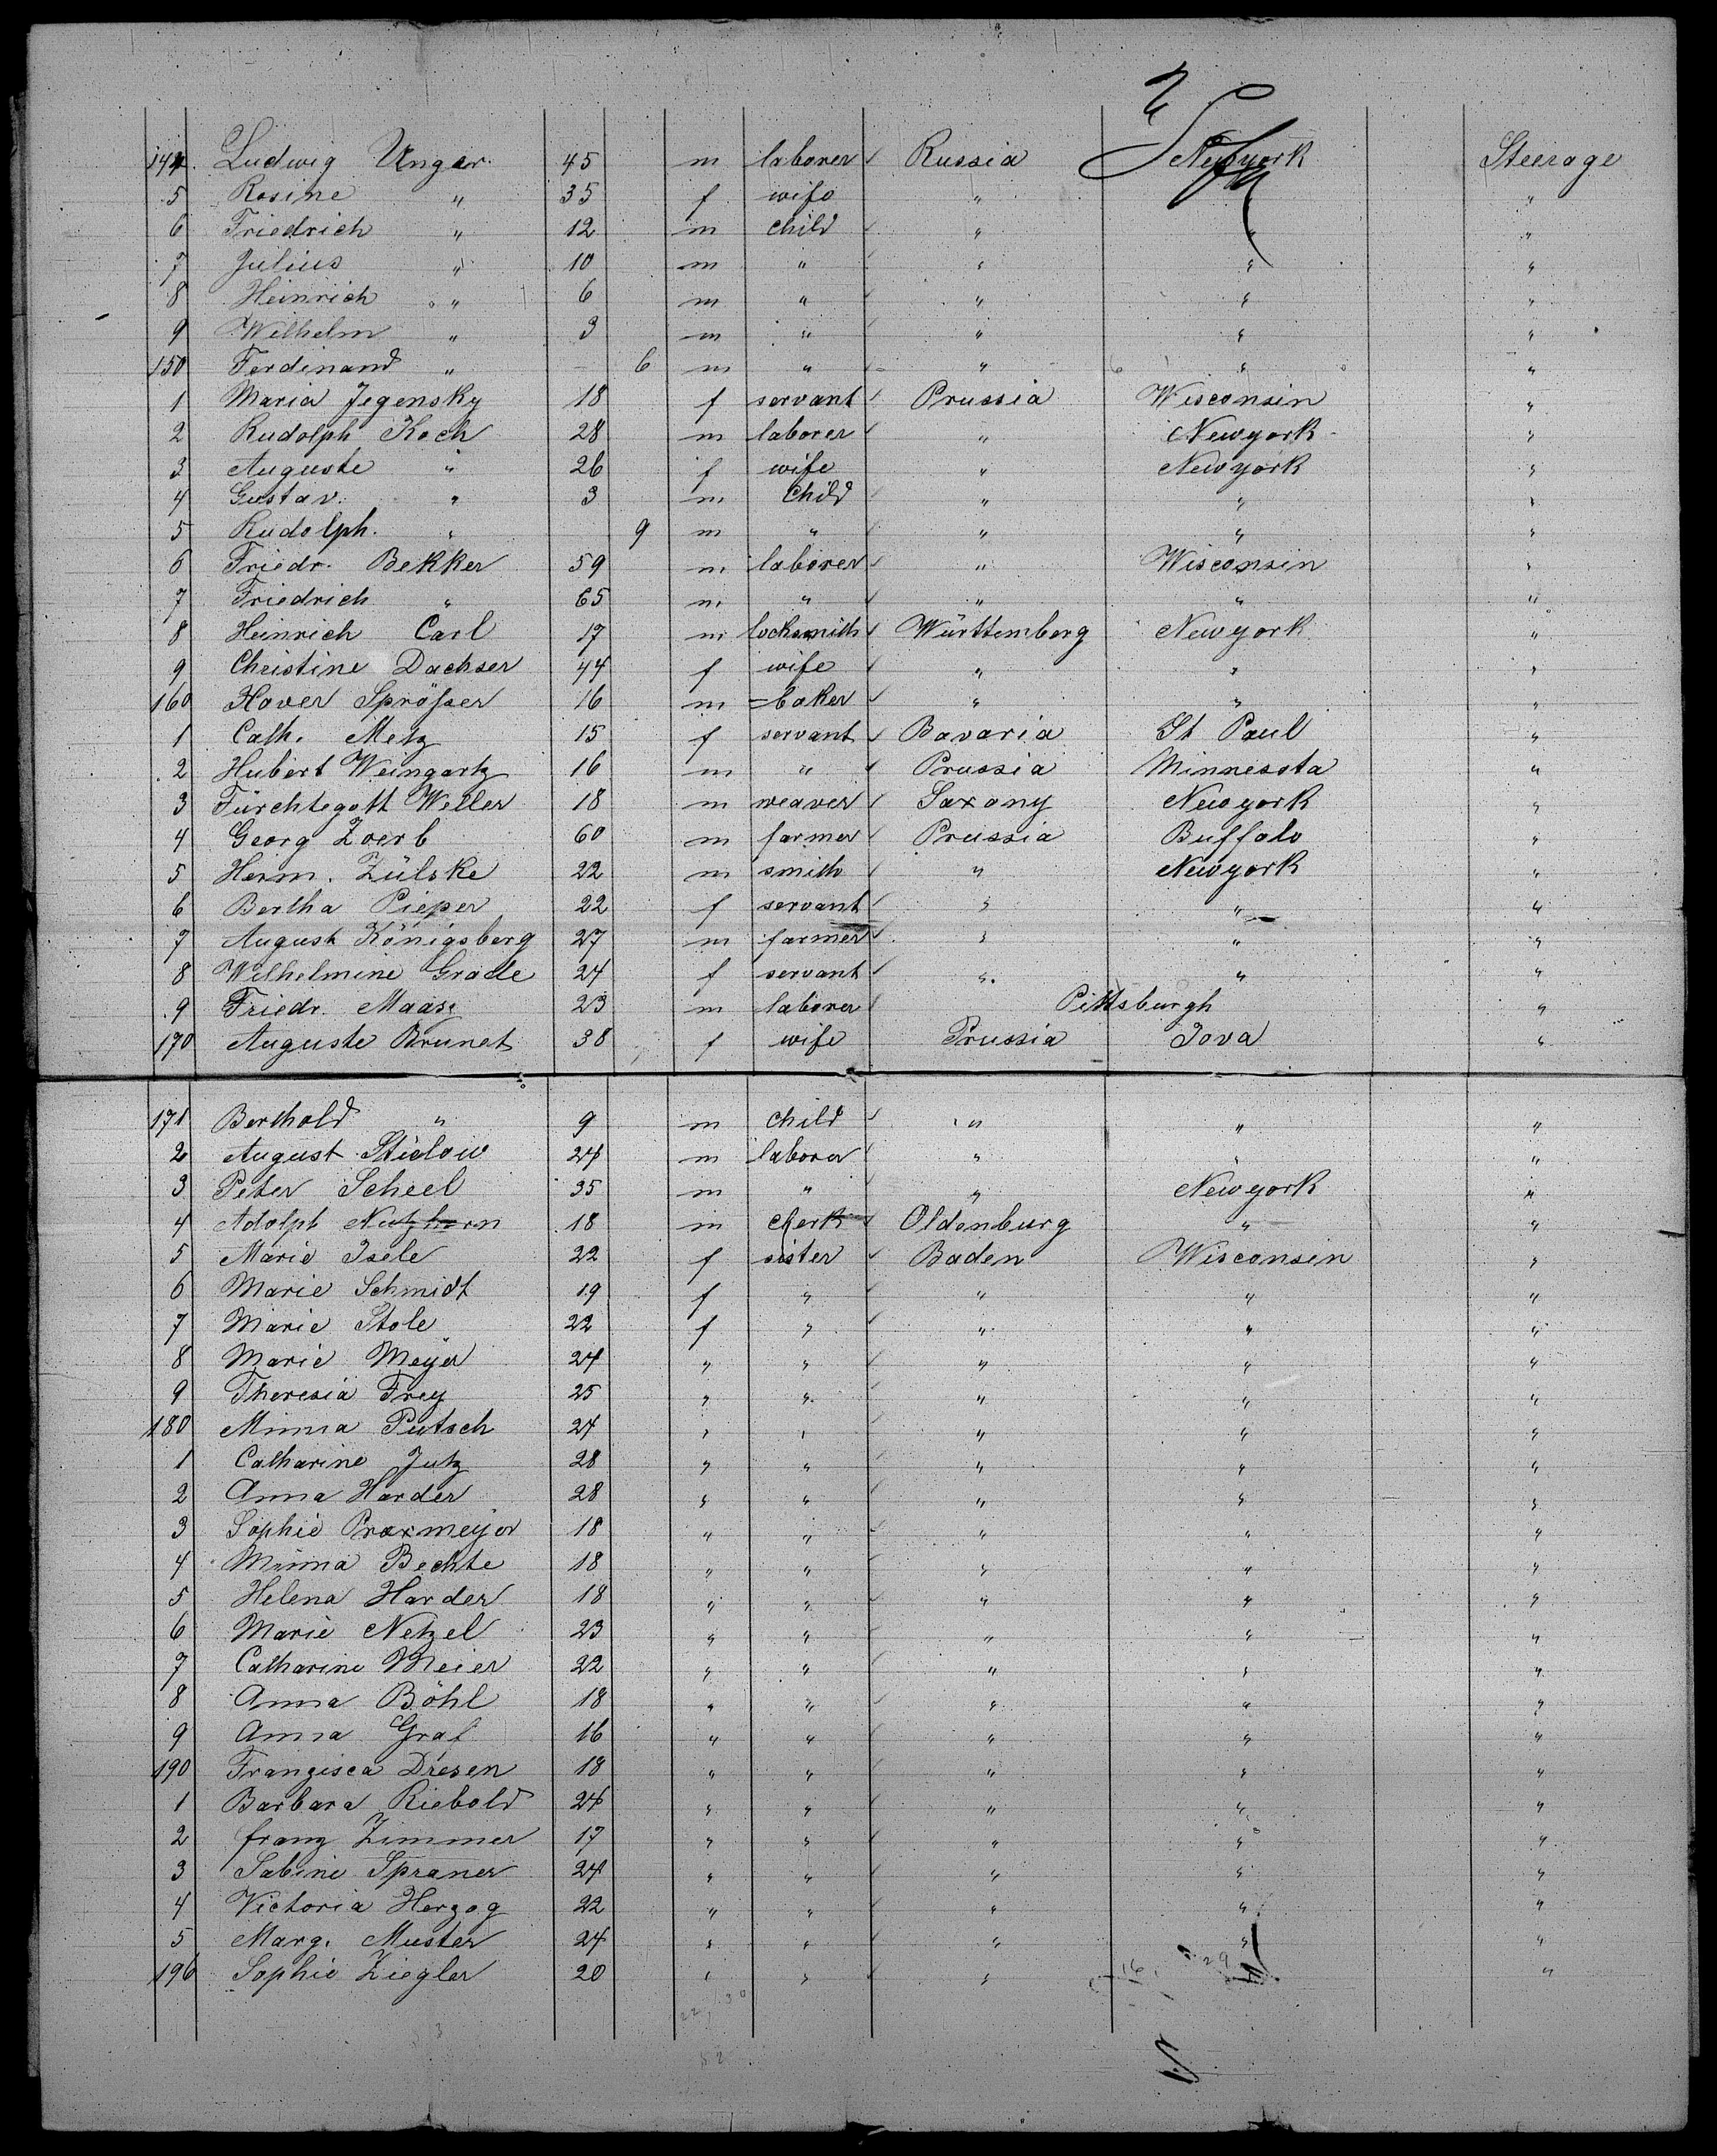 144. Ludwig Unger 45 m laborer Russia Newyork Steerage
5 Rosine " 35 f wife " "
6 Friedrich " 12 m child " " "
7 Julius " 10 m " " " "
8 Heinrich " 6 m " " " "
9 Wilhelm " 3 m " " " "
150 Ferdinand " - 6 m " " " "
1 Maria Jegensky 18 f servant Prussia Wisconsin "
2 Rudolph Koch 28 m laborer " Newyork "
3 Auguste " 26 f wife " Newyork "
4 Gustav " 3 m Child " " "
5 Rudolph. " 9 m " " " "
6 Friedr. Bekker 59 m laborer " Wisconsin "
7 Friedrich " 65 m " " " "
8 Heinrich Carl 17 m locksmith Württemberg Newyork "
9 Christine Dachser 44 f wife " " "
160 Xaver Sprösser 16 m baker " " "
1 Cath. Metz 15 f servant Bavaria St Paul "
2 Hubert Weingartz 16 m " Prussia Minnesota "
3 Fürchtegott Weller 18 m weaver Saxony Newyork "
4 Georg Zoerb 60 m farmer Prussia Buffalo "
5 Herm. Zülske 22 m smith " Newyork "
6 Bertha Pieper 22 f servant " " "
7 August Königsberg 27 m farmer " " "
8 Wilhelmine Grade 24 f servant " " "
9 Friedr. Maasz 23 m laborer Pittsburgh "
170 Auguste Brunet 38 f wife Prussia Iova "
171 Berthold " 9 m child " " "
2 August Stielow 24 m laborer " " "
3 Peter Scheel 35 m " " Newyork "
4 Adolph Nutzhorn 18 m clerk Oldenburg " "
5 Marie Isele 22 f sister Baden Wisconsin "
6 Marie Schmidt 19 f " " " "
7 Marie Stole 22 f " " " "
8 Marie Meyer 24 " " " " "
9 Theresia Frey 25 " " " " "
180 Minna Putsch 24 " " " " "
1 Catharine Jutz 28 " " " " "
2 Anna Harder 28 " " " " "
3 Sophie Praxmeyer 18 " " " " "
4 Minna Bechte 18 " " " " "
5 Helena Harder 18 " " " " "
6 Marie Netzel 23 " " " " "
7 Catharine Meier 22 " " " " "
8 Anna Böhl 18 " " " " "
9 Anna Graf 16 " " " " "
190 Franzisca Dresen 18 " " " " "
1 Barbara Riebold 24 " " " " "
2 franz Zimmer 17 " " " " "
3 Sabine Spraner 24 " " " " "
4 Victoria Herzog 22 " " " " "
5 Marg. Muster 24 " " " " "
196 Sophie Ziegler 20 " " " " "